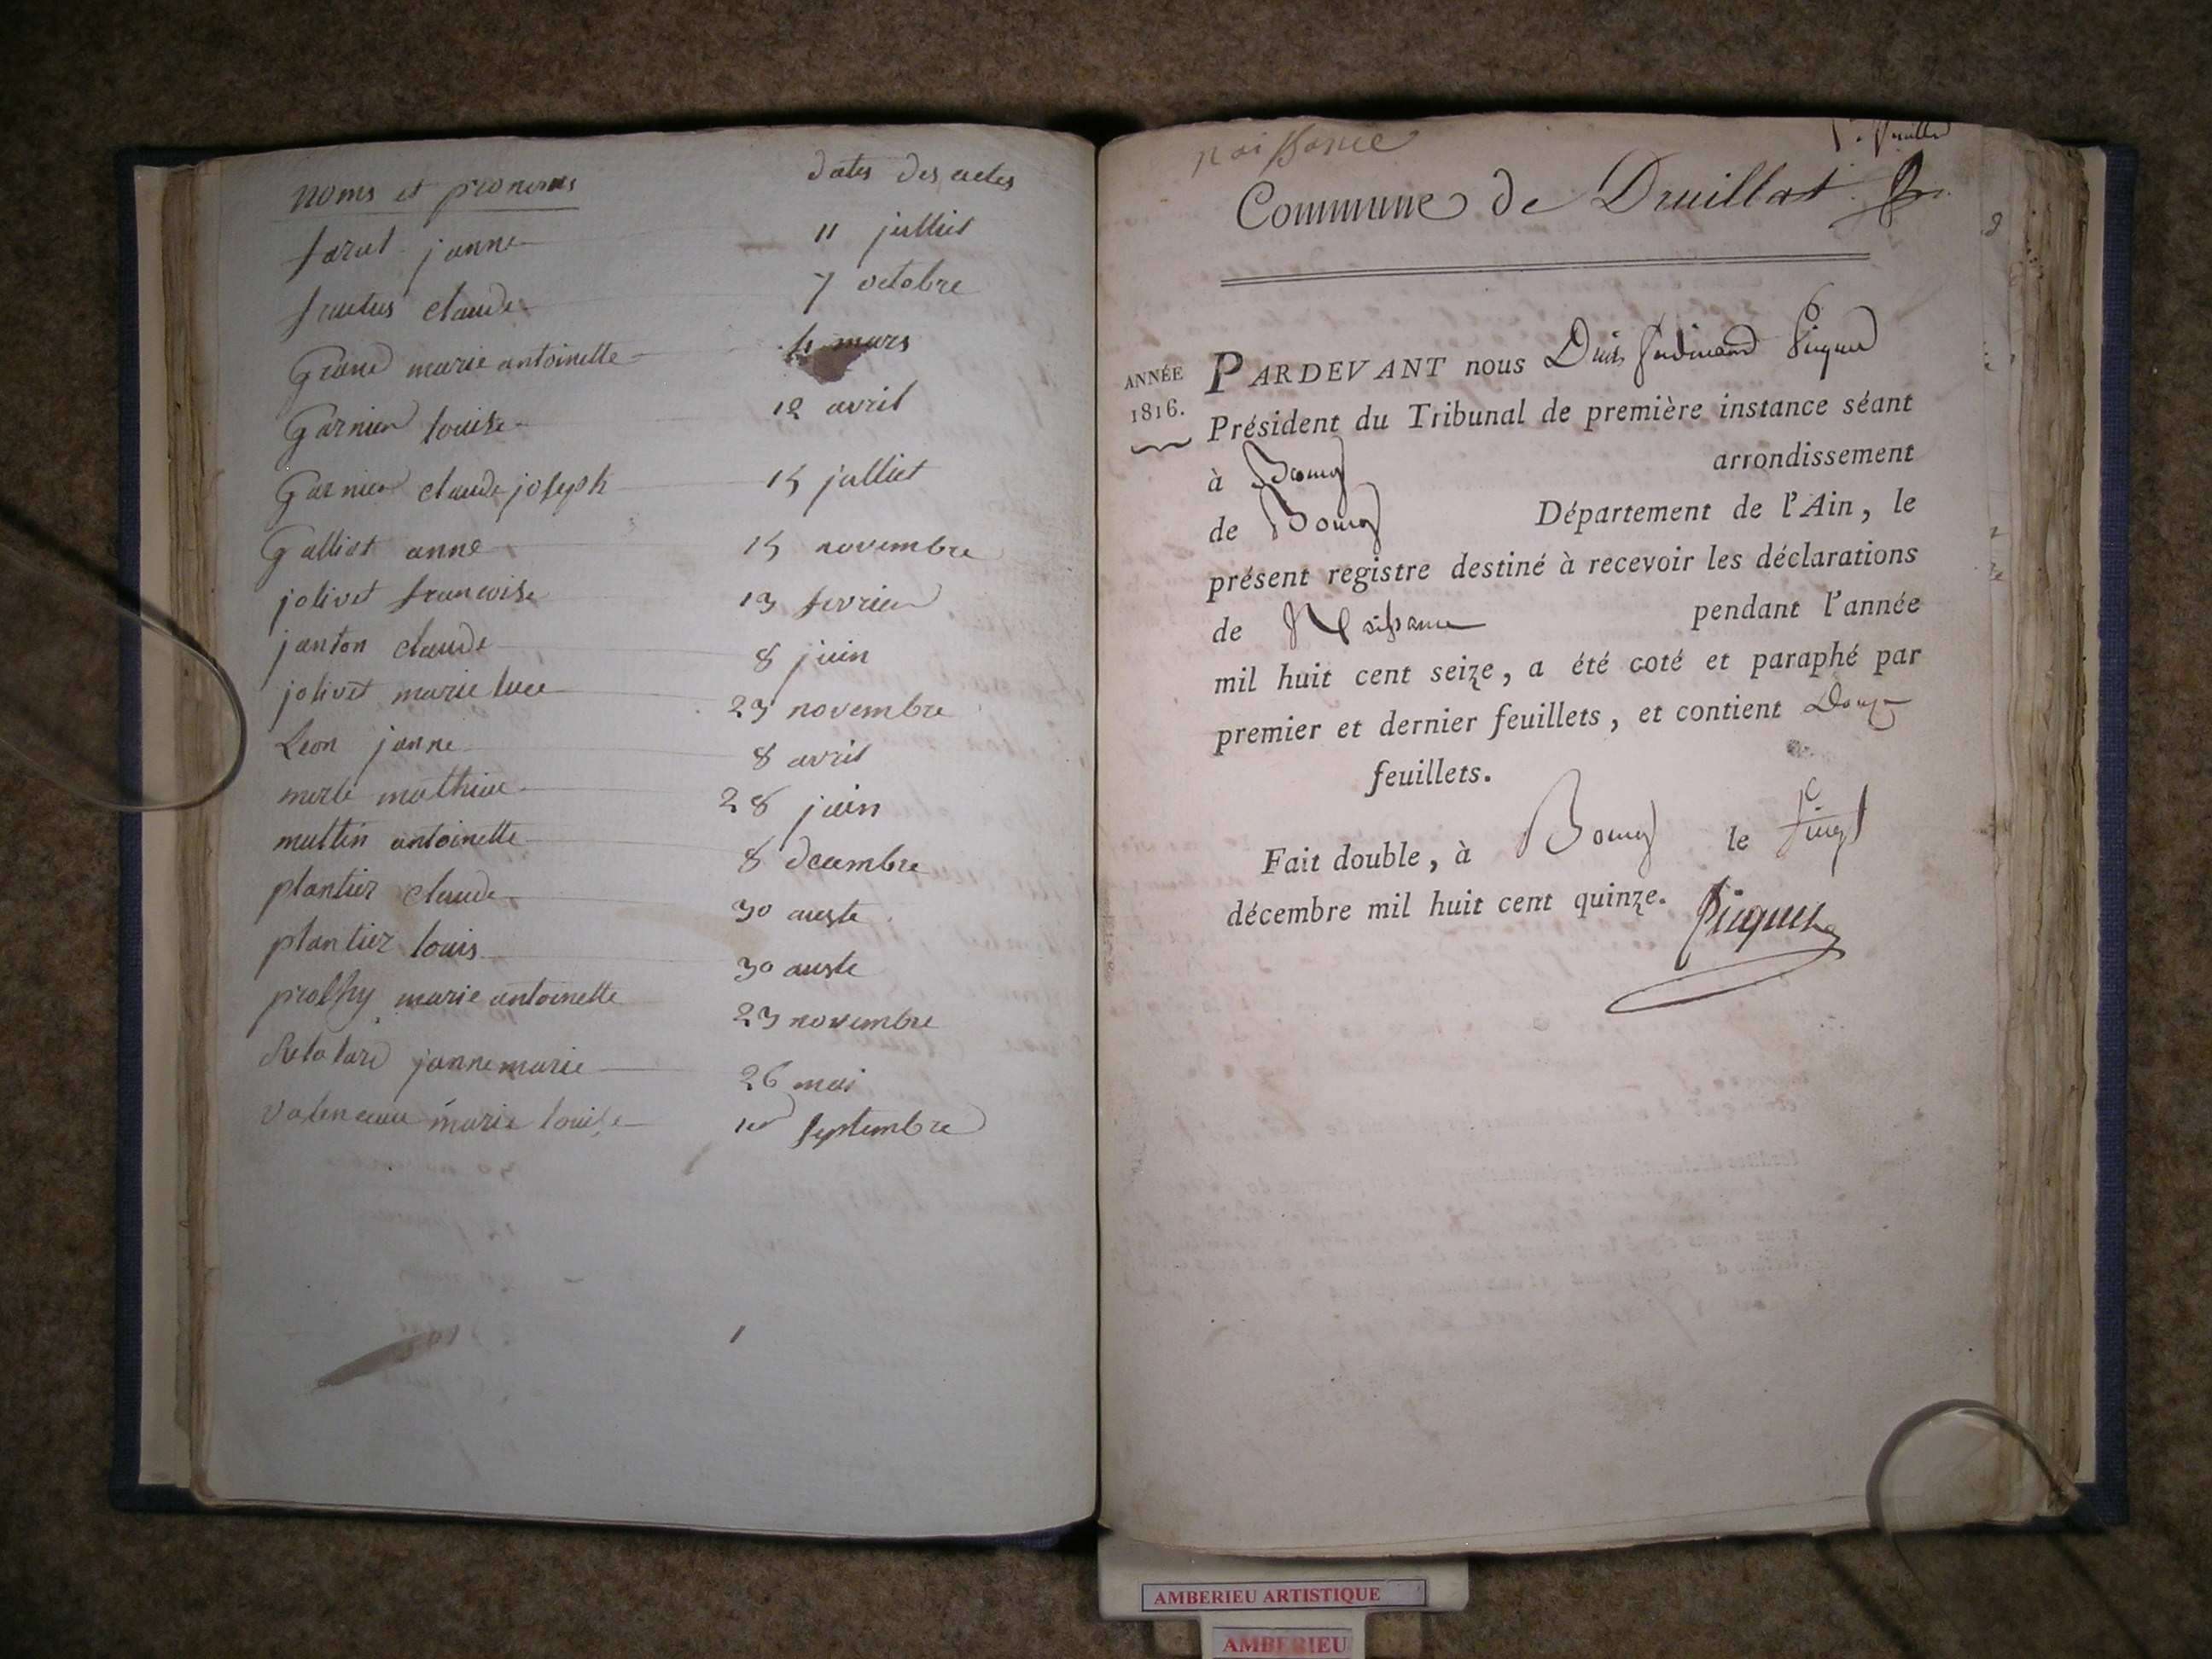 noms et prenoms dates des actes
farat janne 11 julliet
fructus claude 7 octobre
Grand marie antoinette 4 mars
Garnier louise 12 avril
Garnier claude joseph 15 julliet
Galliot anne 15 novembre
jolivet francoise 13 fevrier
janton claude 8 juin
jolivet marie luce 23 novembre
Leon janne 8 avril
merle mathieu 28 juin
multin antoinette 8 decembre
plantier claude 30 auste
plantier louis 30 auste
prolhy marie antoinette 23 novembre
janne marie 26 mai
marie louise 1er septembre
naissance
Commune de Druillat
ANNÉE
1816.
PARDEVANT nous Ferdinand Picquet
Président du Tribunal de première instance séant
à Bourg arrondissement
de Bourg Département de l'Ain, le
présent registre destiné à recevoir les déclarations
de Naissance pendant l'année
mil huit cent seize, a été coté et paraphé par
premier et dernier feuillets, et contient Douze
feuillets.
Fait double, à Bourg le Vingt
décembre mil huit cent quinze.
Picquet
AMBERIEU ARTISTIQUE
AMBERIEU